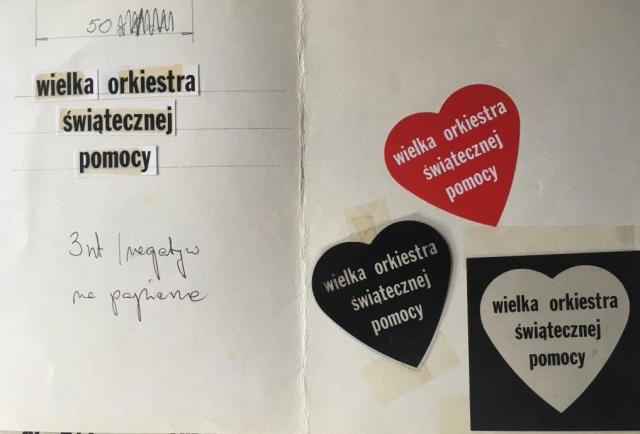 50
wielka orkiestra
świątecznej
pomocy
wielka orkiestra
świątecznej
pomocy
wielka orkiestra
świątecznej
pomocy
wielka orkiestra
świątecznej
pomocy
negatyw
na papierze